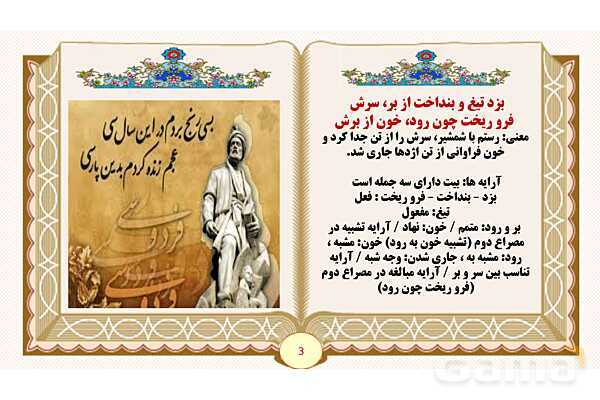 بزد تیغ و بنداخت از بر، سرش
فرو ریخت چون رود، خون از برش
معنی: رستم با شمشیر، سرش را از تن جدا کرد و
خون فراوانی از تن اژدها جاری شد.
آرایه ها: بیت دارای سه جمله است
بزد - بنداخت - فرو ریخت : فعل
تیغ: مفعول
بر و رود: متمم / خون: نهاد / آرایه تشبیه در
مصراع دوم (تشبیه خون به رود) خون: مشبه ،
رود: مشبه به ، جاری شدن: وجه شبه / آرایه
تناسب بین سر و بر / آرایه مبالغه در مصراع دوم
(فرو ریخت چون رود)
بسی رنج بردم در این سال سی
عجم زنده کردم بدین پارسی
فردوسی
3
Gama